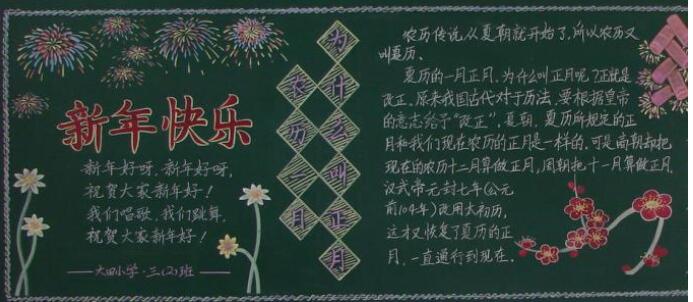 新年快乐
新年好呀,新年好呀,
祝贺大家新年好!
我们唱歌,我们跳舞,
祝贺大家新年好!
——大田小学·三(2)班
农历一月
为什么叫正月
农历传说从夏朝就开始了,所以农历又
叫夏历。
夏历的一月正月,为什么叫正月呢?正就是
改正。原来我国古代对于历法,要根据皇帝
的意志给予“改正”,夏朝,夏历所规定的正
月和我们现在农历的正月是一样的。可是商朝却把
现在的农历十二月算做正月,周朝把十一月算做正月,
汉武帝元封七年(公元
前104年)改用太初历,
这才又恢复了夏历的正
月,一直通行到现在。